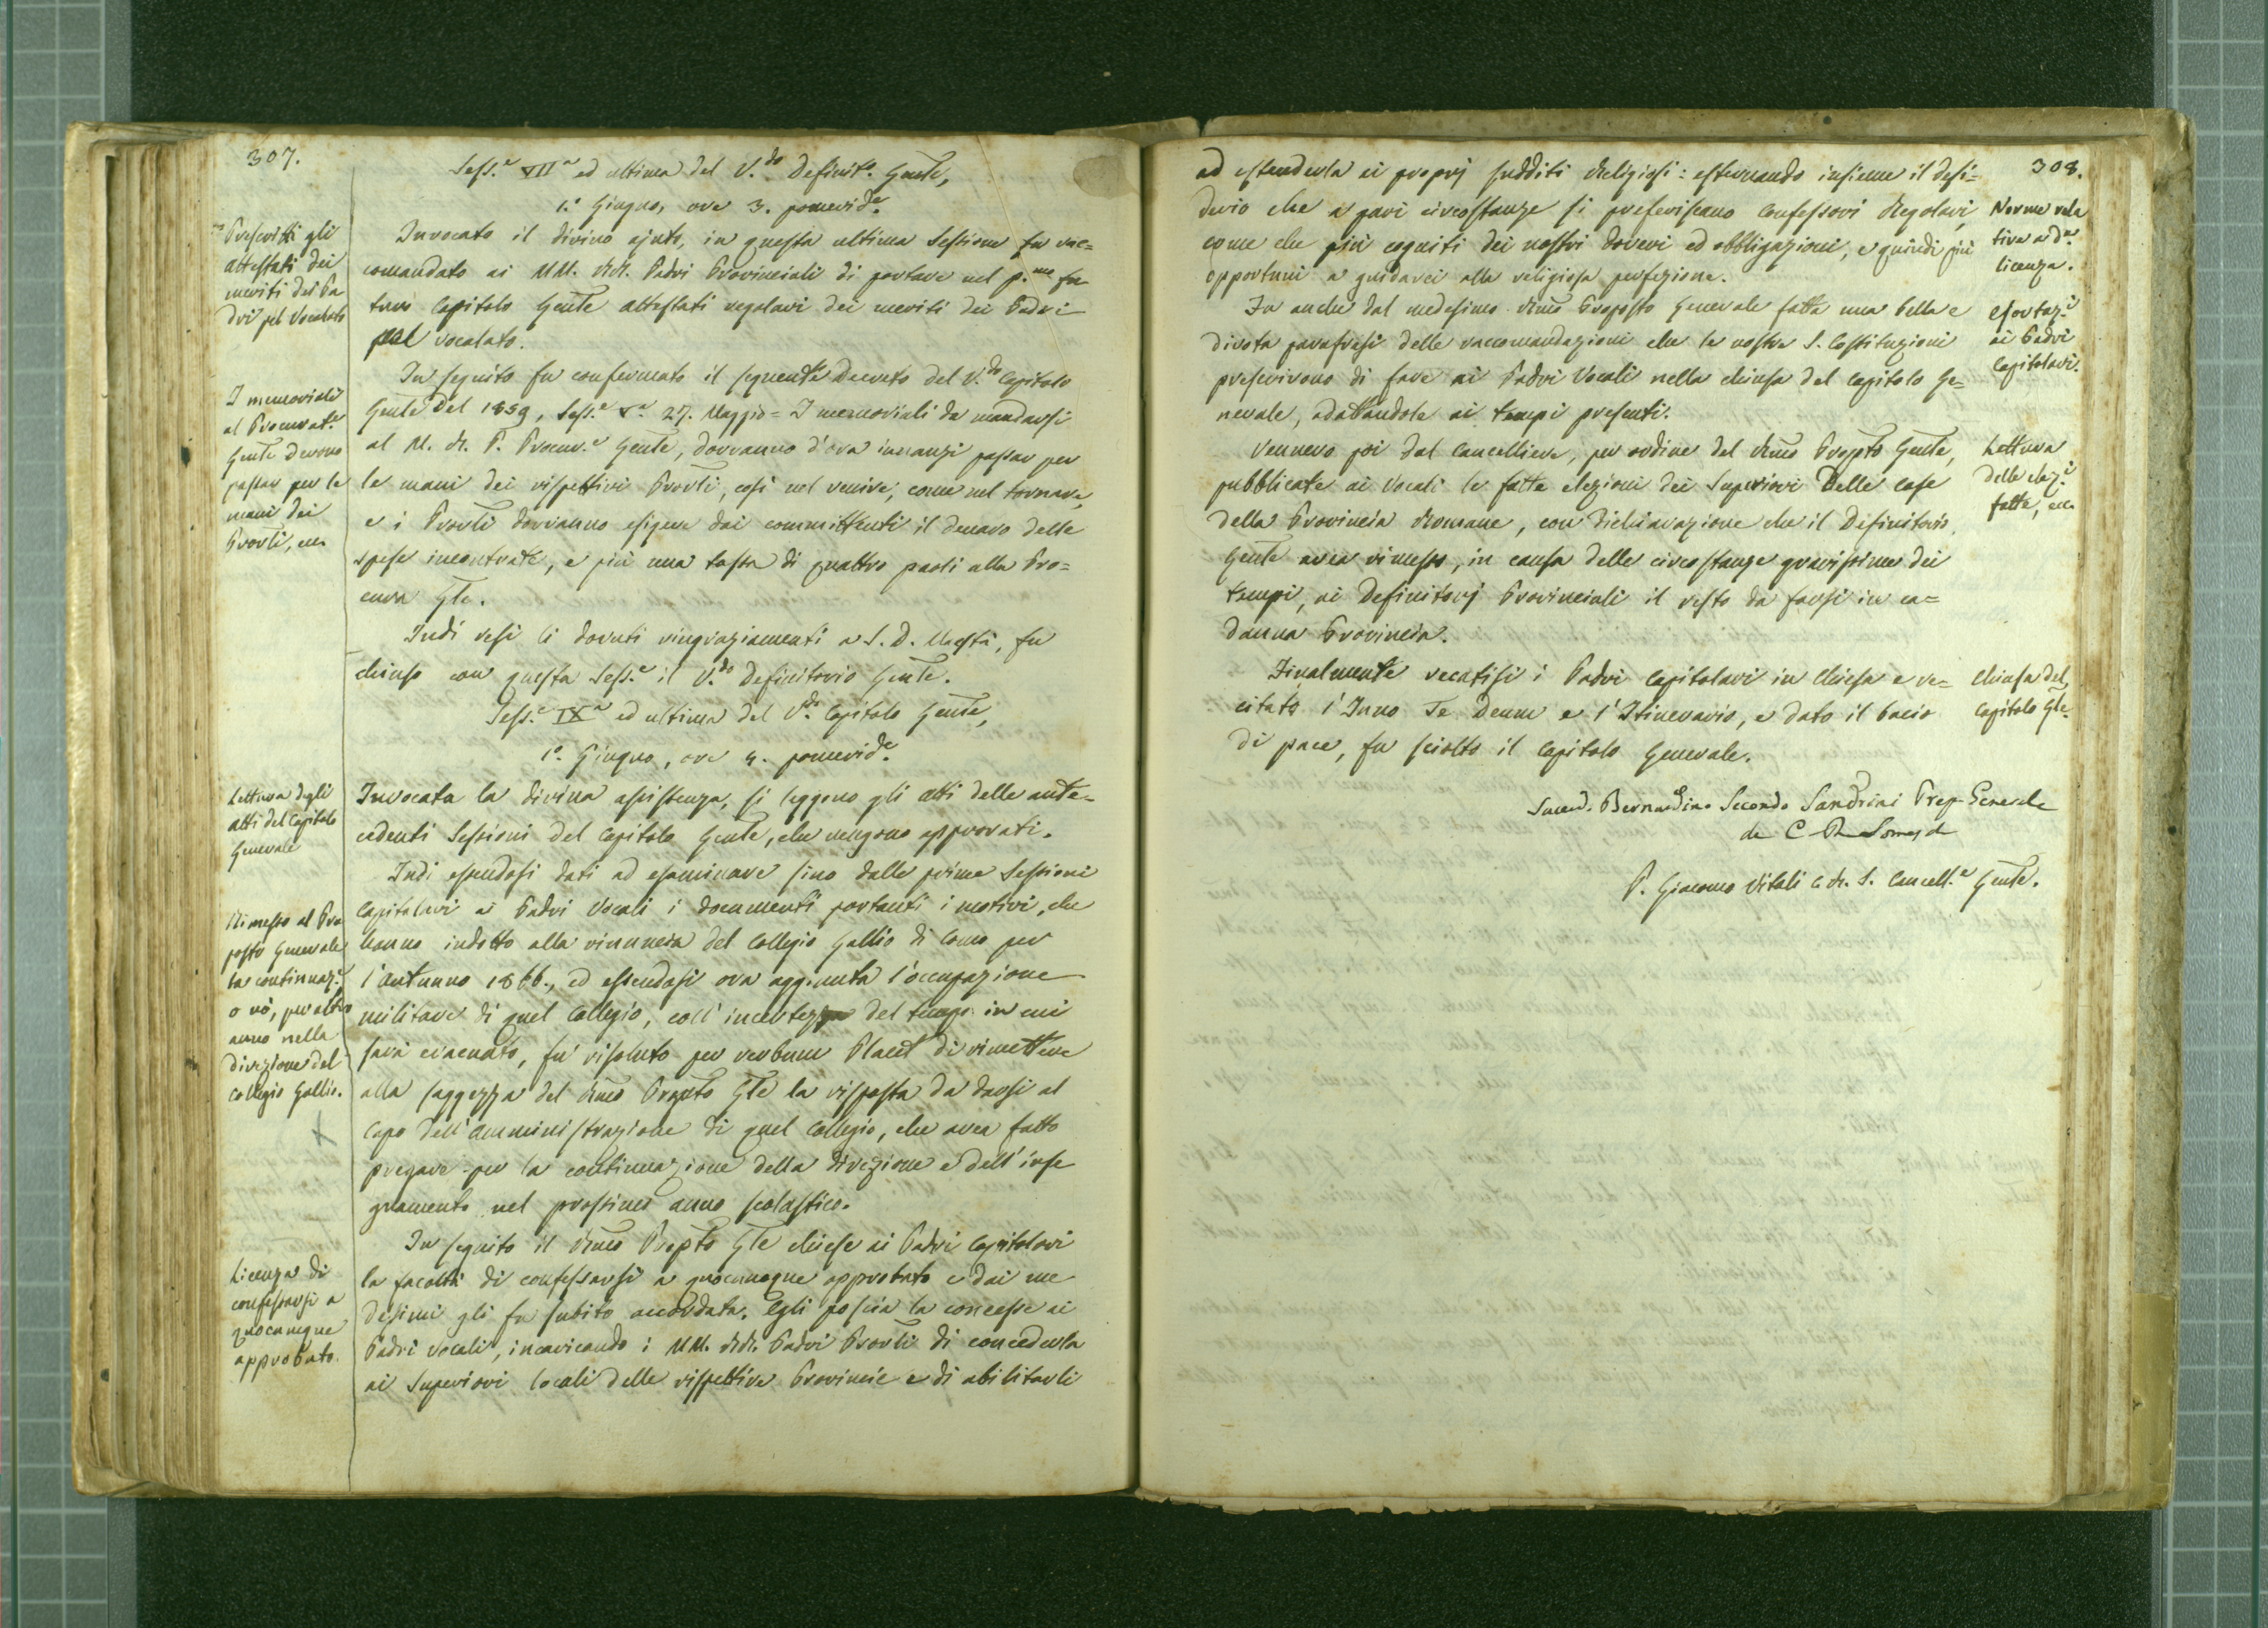 307.
Sess.e VII.a ed ultima del V.do Definit.o Gnle,
1.o Giugno, ore 3. pomerid.e
Prescritti gli
attestati dei
meriti dei Pa
dri pel Vocalato
Invocato il divino ajuto, in questa ultima Sessione fu rac=
comandato ai MM. RR. Padri Provinciali di portare nel p.mo fu
turo Capitolo Gnle attestati regolari dei meriti dei Padri
pel vocalato.
I memoriali
al Procurat.e
Gnle devono
passar per le
mani dei
Provli, ec.
In seguito fu confermato il seguente Decreto del V.do Capitolo
Gnle del 1859, Sess.e V.a 27. Maggio = I memoriali da mandarsi
al M. R. P. Procur.e Gnle, dovranno d'ora innanzi passar per
le mani dei rispettivi Provli, così nel venire, come nel tornare,
e i Provli dovranno esigere dai committenti il denaro delle
spese incontrate, e più una tassa di quattro paoli alla Pro=
cura Gle.
Indi resi li dovuti ringraziamenti a S. D. Maestà, fu
chiuso con questa Sess.e il V.do Definitorio Gnle.
Sess.e IX.a ed ultima del V.do Capitolo Gnle,
1.o Giugno, ore 4. pomerid.e
Lettura degli
atti del Capitolo
Generale
Invocata la divina assistenza, si leggono gli atti delle ante=
cedenti Sessioni del Capitolo Gnle, che vengono approvati.
Rimesso al Pre
posto Generale
la continuaz.e
o nò, per altro
anno nella
direzione del
Collegio Gallio.
Indi essendosi dati ad esaminare sino dalle prime Sessioni
Capitolari ai Padri Vocali i documenti portanti i motivi, che
hanno indotto alla rinuncia del Collegio Gallio di Como per
l'autunno 1866., ed essendosi ora aggiunta l'occupazione
militare di quel Collegio, coll' incertezza del tempo in cui
sarà evacuato, fu risoluto per verbum Placet di rimettere
alla saggezza del Rmo Prepto Gle la risposta da darsi al
capo dell' amministrazione di quel Collegio, che avea fatto
pregare per la continuazione della direzione e dell' inse
gnamento nel prossimo anno scolastico.
Licenza di
confessarsi a
quocumque
approbato.
In seguito il Rmo Prepto Gle chiese ai Padri Capitolari
la facoltà di confessarsi a quocumque approbato e dai me
desimi gli fu subito accordata. Egli poscia la concesse ai
Padri vocali, incaricando i MM. RR. Padri Provli di concederla
ai Superiori locali delle rispettive Provincie e di abilitarli
308.
ad estenderla ai proprj sudditi Religiosi: esternando insieme il desi=
derio che a pari circostanze si preferiscano Confessori Regolari,
come che più cogniti dei nostri doveri ed obbligazioni, e quindi più
opportuni a guidarci alla religiosa perfezione.
Norme rela
tive a d.a
licenza.
Fu anche dal medesimo Rmo Preposto Generale fatta una bella e
divota parafrasi delle raccomandazioni che le nostre S. Costituzioni
prescrivono di fare ai Padri Vocali nella chiusa del Capitolo Ge=
nerale, adattandole ai tempi presenti.
Esortaz.i
ai Padri
Capitolari.
Vennero poi dal Cancelliere, per ordine del Rmo Prepto Gnle,
pubblicate ai Vocali le fatte elezioni dei Superiori delle case
della Provincia Romana, con dichiarazione che il Definitorio
Gnle avea rimesso, in causa delle circostanze gravissime dei
tempi, ai Definitorj Provinciali il resto da farsi in ca=
dauna Provincia.
Lettura
delle elez.i
fatte, ec.
Finalmente recatisi i Padri Capitolari in Chiesa e re=
citato l'Inno Te Deum e l'Itinerario, e dato il bacio
di pace, fu sciolto il Capitolo Generale.
Chiusa del
Capitolo Gle.
Sacerd. Bernardino Secondo Sandrini Prep Generale
de C R Somasd
P. Giacomo Vitali C. R. S. Cancell.e Gnle.